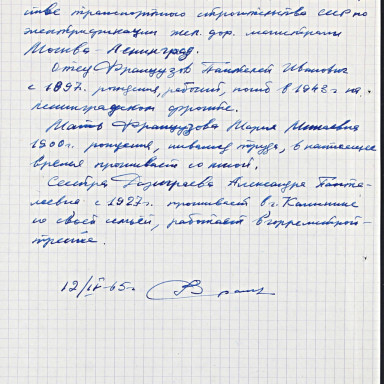 стве транспортного строительства СССР по
электрификации жел. дор. магистрали
Москва - Ленинград.
Отец Французов Пантелей Иванович
с 1897г. рождения, рабочий, погиб в 1942г на
Ленинградском фронте.
Мать Французова Мария
1900г. рождения, инвалид труда, в настоящее
время проживает со мной.
Сестра Александра Панте-
леевна с 1927г. проживает в г. Калинине
со своей семьёй, работает в горремстрой-
тресте.
12/IV-65г.